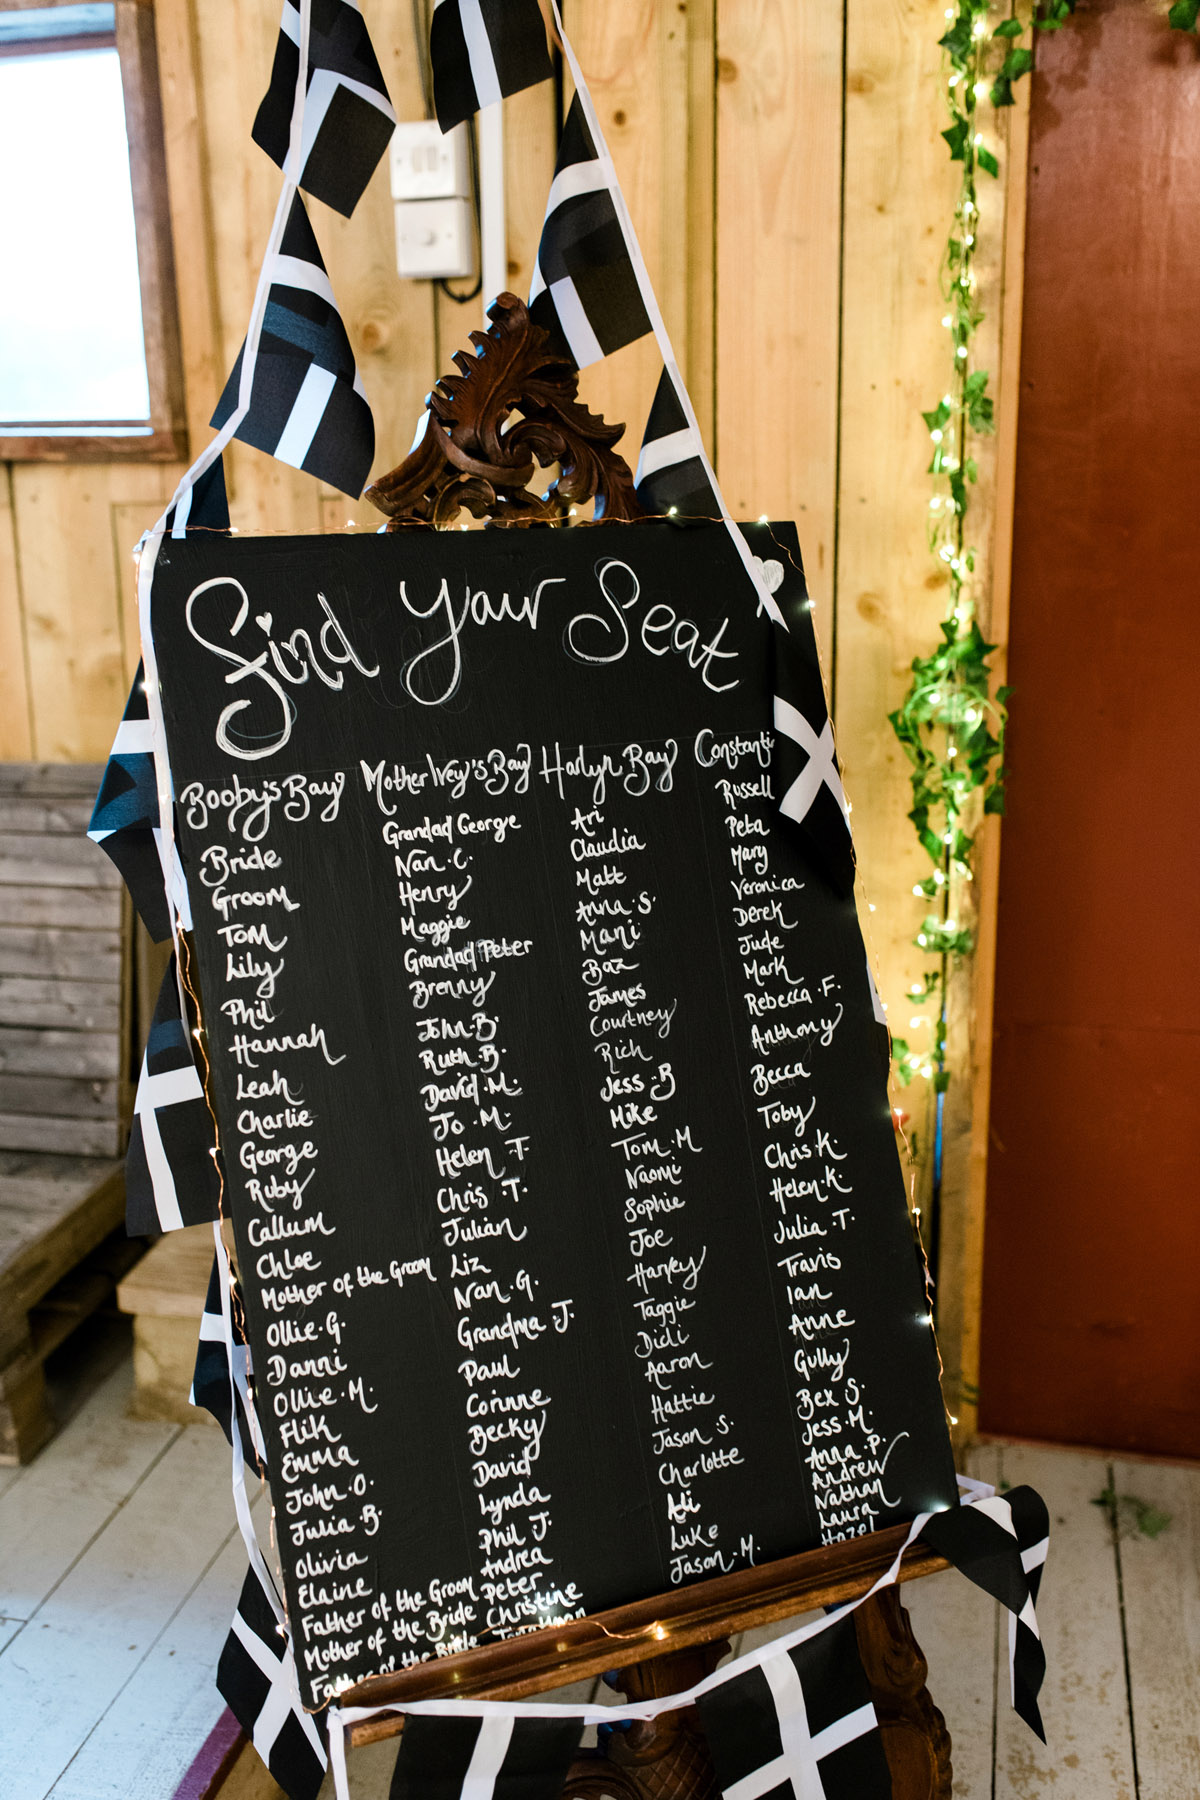 Find Your Seat
Booby's Bay
Bride
Groom
Tom
Lily
Phil
Hannah
Leah
Charlie
George
Ruby
Callum
Chloe
Mother of the Groom
Ollie.G.
Danni
Ollie.M.
Flik
Emma
John.O.
Julia.B.
Olivia
Elaine
Father of the Groom
Mother of the Bride
Father of the Bride
Mother Ivey's Bay
Grandad George
Nan.C.
Henry
Maggie
Grandad Peter
Brenny
John.B.
Ruth.B.
David.M.
Jo.M.
Helen.T.
Chris.T.
Julian
Liz
Nan.G.
Grandma J.
Paul
Corinne
Becky
David
Lynda
Phil J.
Andrea
Peter
Christine
Harlyn Bay
Ari
Claudia
Matt
Anna.S.
Mani
Baz
James
Courtney
Rich
Jess.B
Mike
Tom.M
Naomi
Sophie
Joe
Harvey
Taggie
Didi
Aaron
Hattie
Jason.S.
Charlotte
Adi
Luke
Jason.M.
Constanti
Russell
Peta
Mary
Veronica
Derek
Jude
Mark
Rebecca.F.
Anthony
Becca
Toby
Chris.K.
Helen.K.
Julia.T.
Travis
Ian
Anne
Gully
Bex S.
Jess.M.
Anna.P.
Andrew
Nathan
Laura
Hazel